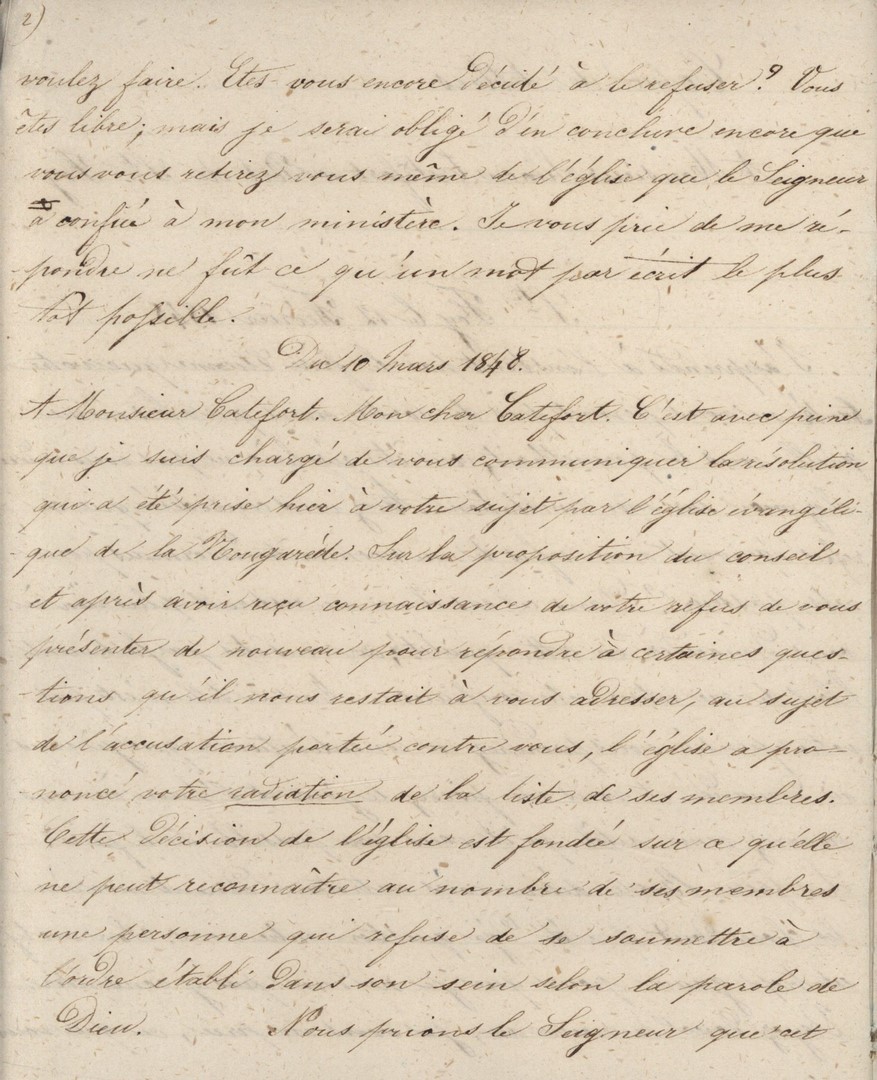 2)
voulez faire. Etes-vous encore décidé à le refuser? Vous
êtes libre; mais je serai obligé d'en conclure encore que
vous vous retirez vous même de l'église que le Seigneur
a confiée à mon ministère. Je vous prie de me ré-
pondre ne fût ce qu'un mot par écrit le plus
tôt possible.
Du 10 Mars 1848.
A Monsieur Catefort. Mon cher Catefort. C'est avec peine
que je suis chargé de vous communiquer la résolution
qui a été prise hier à votre sujet par l'église évangéli-
que de la Nougarède. Sur la proposition du conseil
et après avoir reçu connaissance de votre refus de vous
présenter de nouveau pour répondre à certaines ques-
tions qu'il nous restait à vous adresser, au sujet
de l'accusation portée contre vous, l'église a pro-
noncé votre radiation de la liste de ses membres.
Cette décision de l'église est fondée sur ce qu'elle
ne peut reconnaître au nombre de ses membres
une personne qui refuse de se soumettre à
l'ordre établi dans son sein selon la parole de
Dieu. Nous prions le Seigneur que cet